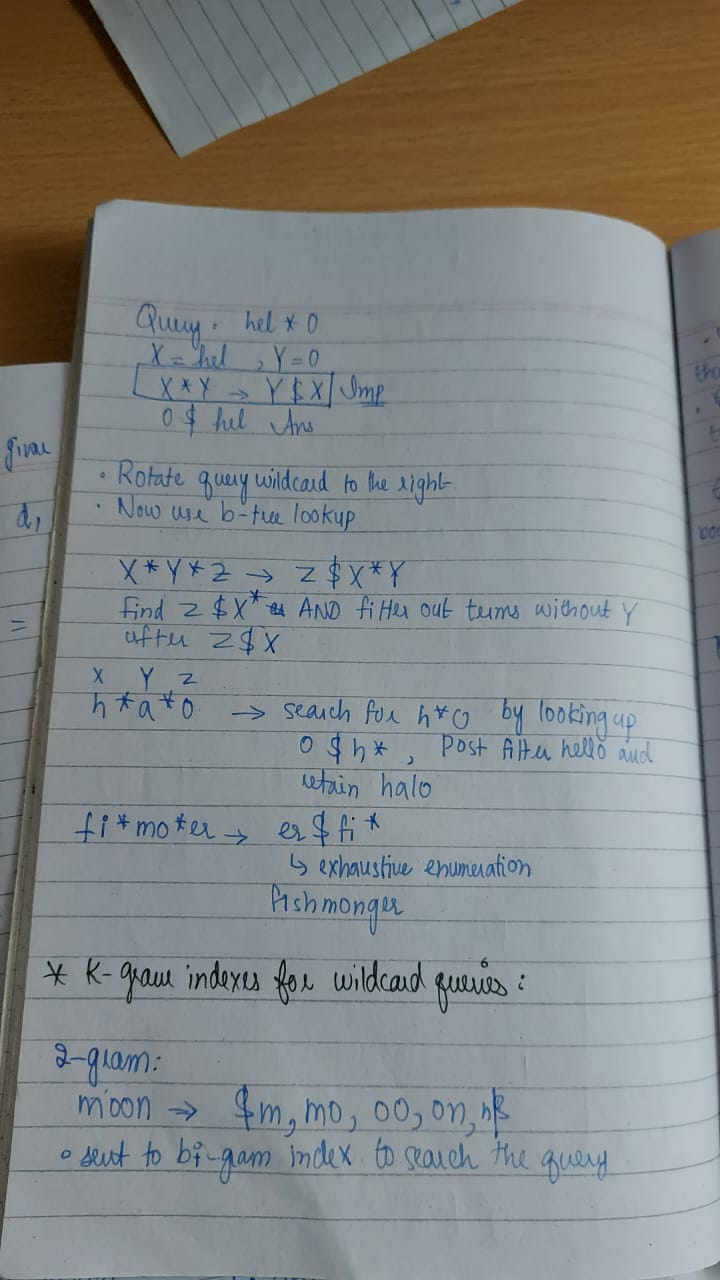 Query. hel * 0
X = hel , Y = 0
X * Y → Y $ X Imp
0 $ hel Ans
• Rotate query wildcard to the right
• Now use b-tree lookup
X * Y * Z → Z $ X * Y
Find Z $ X * AND filter out terms without Y
after Z $ X
X Y Z
h * a * o → search for h * o by looking up
o $ h * , Post filter hello and
retain halo
fi * mo * er → er $ fi *
↳ exhaustive enumeration
fishmonger
* K-gram indexes for wildcard queries :
2-gram:
moon → $m, mo, oo, on, n$
• sent to bi-gram index to search the query
given
d,
=